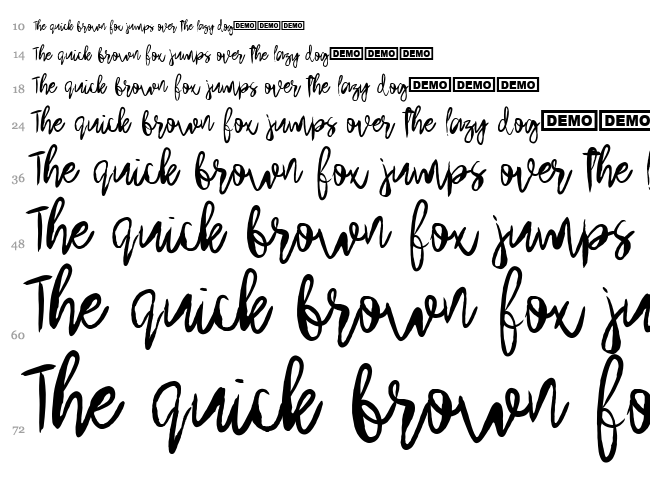 10 The quick brown fox jumps over the lazy dog DEMO DEMO DEMO
14 The quick brown fox jumps over the lazy dog DEMO DEMO DEMO
18 The quick brown fox jumps over the lazy dog DEMO DEMO DEMO
24 The quick brown fox jumps over the lazy dog DEMO DEMO
36 The quick brown fox jumps over the l
48 The quick brown fox jumps
60 The quick brown fox ju
72 The quick brown fo